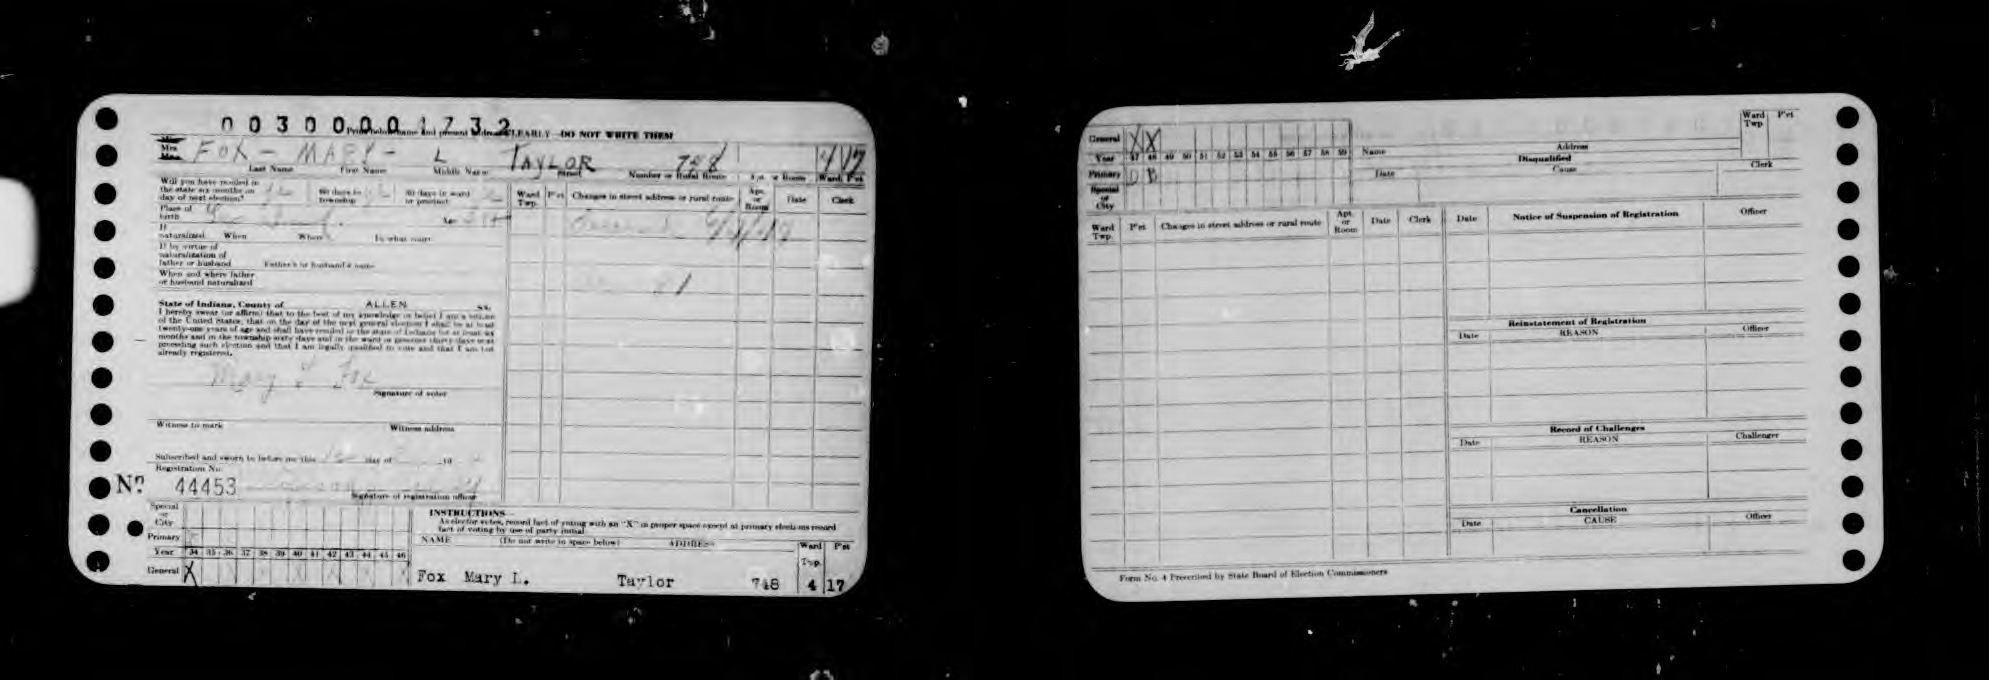 0030000 1732
Print below name and present address CLEARLY—DO NOT WRITE THEM
Mrs. FOX - MARY - L TAYLOR 4 17
Last Name First Name Middle Name Street Number or Rural Route Apt. or Room Ward P'ct
Will you have resided in
the state six months on
day of next election?
60 days in
township
30 days in ward
or precinct
Place of
birth
Age
If
naturalized When Where In what court
If by virtue of
naturalization of
father or husband Father's or husband's name
When and where father
or husband naturalized
State of Indiana, County of ALLEN ss:
I hereby swear (or affirm) that to the best of my knowledge or belief I am a citizen
of the United States; that on the day of the next general election I shall be at least
twenty-one years of age and shall have resided in the state of Indiana for at least six
months and in the township sixty days and in the ward or precinct thirty days next
preceding such election and that I am legally qualified to vote and that I am not
already registered.
Mary L Fox
Signature of voter
Witness to mark Witness address
Subscribed and sworn to before me this day of 19
Registration No.
No. 44453
Signature of registration officer
Ward
Twp. P'ct Changes in street address or rural route Apt.
or
Room Date Clerk
Special
or
City
Primary
Year 34 35 36 37 38 39 40 41 42 43 44 45 46
General X
INSTRUCTIONS—
As elector votes, record fact of voting with an "X" in proper space except at primary elections record
fact of voting by use of party initial.
NAME (Do not write in space below) ADDRESS Ward
Twp. P'ct
Fox Mary L. Taylor 748 4 17
General X X
Year 47 48 49 50 51 52 53 54 55 56 57 58 59
Primary D
Special
or
City
Name Address Ward
Twp. P'ct
Disqualified
Date Cause Clerk
Ward
Twp. P'ct Changes in street address or rural route Apt.
or
Room Date Clerk
Date Notice of Suspension of Registration Officer
Reinstatement of Registration
Date REASON Officer
Record of Challenges
Date REASON Challenger
Cancellation
Date CAUSE Officer
Form No. 4 Prescribed by State Board of Election Commissioners